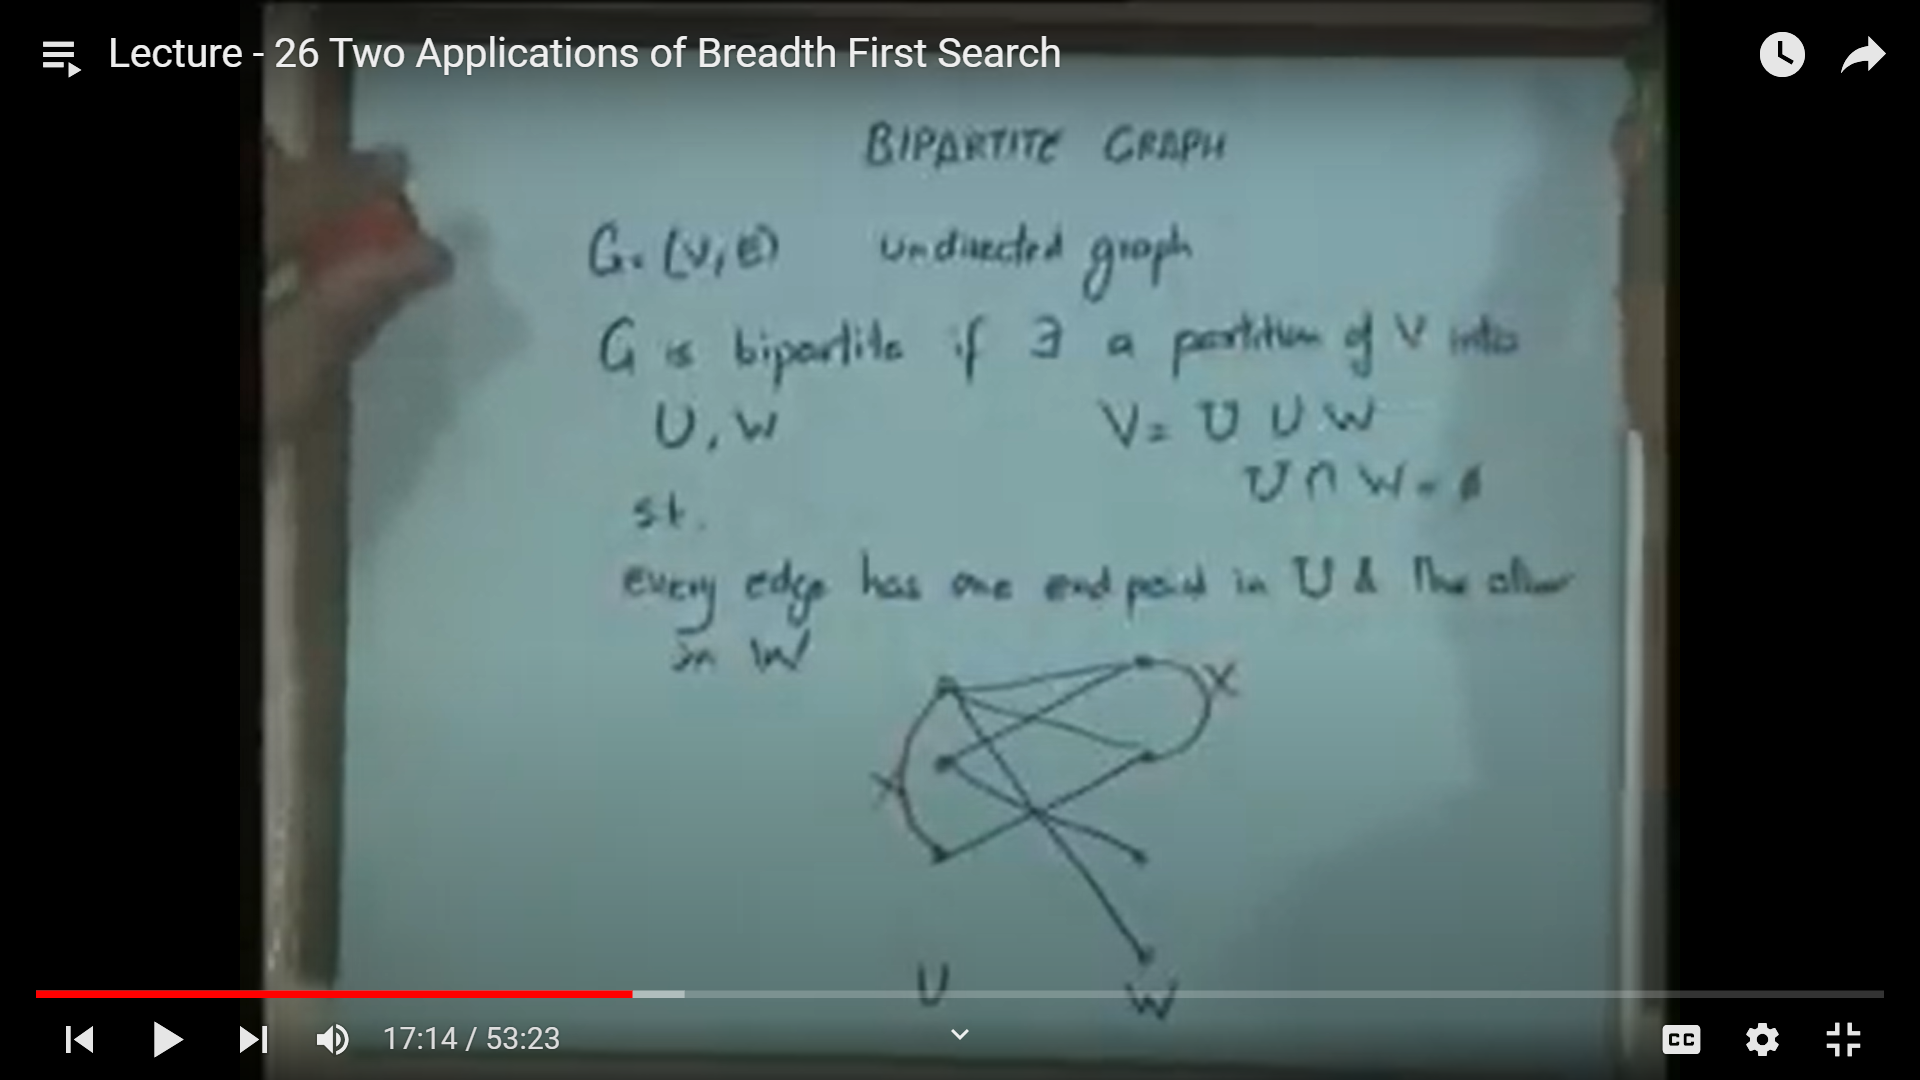 Lecture - 26 Two Applications of Breadth First Search
BIPARTITE GRAPH
G = (V, E) undirected graph
G is bipartite if ∃ a partition of V into
U, W V = U ∪ W
U ∩ W = ∅
s.t.
every edge has one end point in U & the other
in W
X
X
U W
17:14 / 53:23
CC